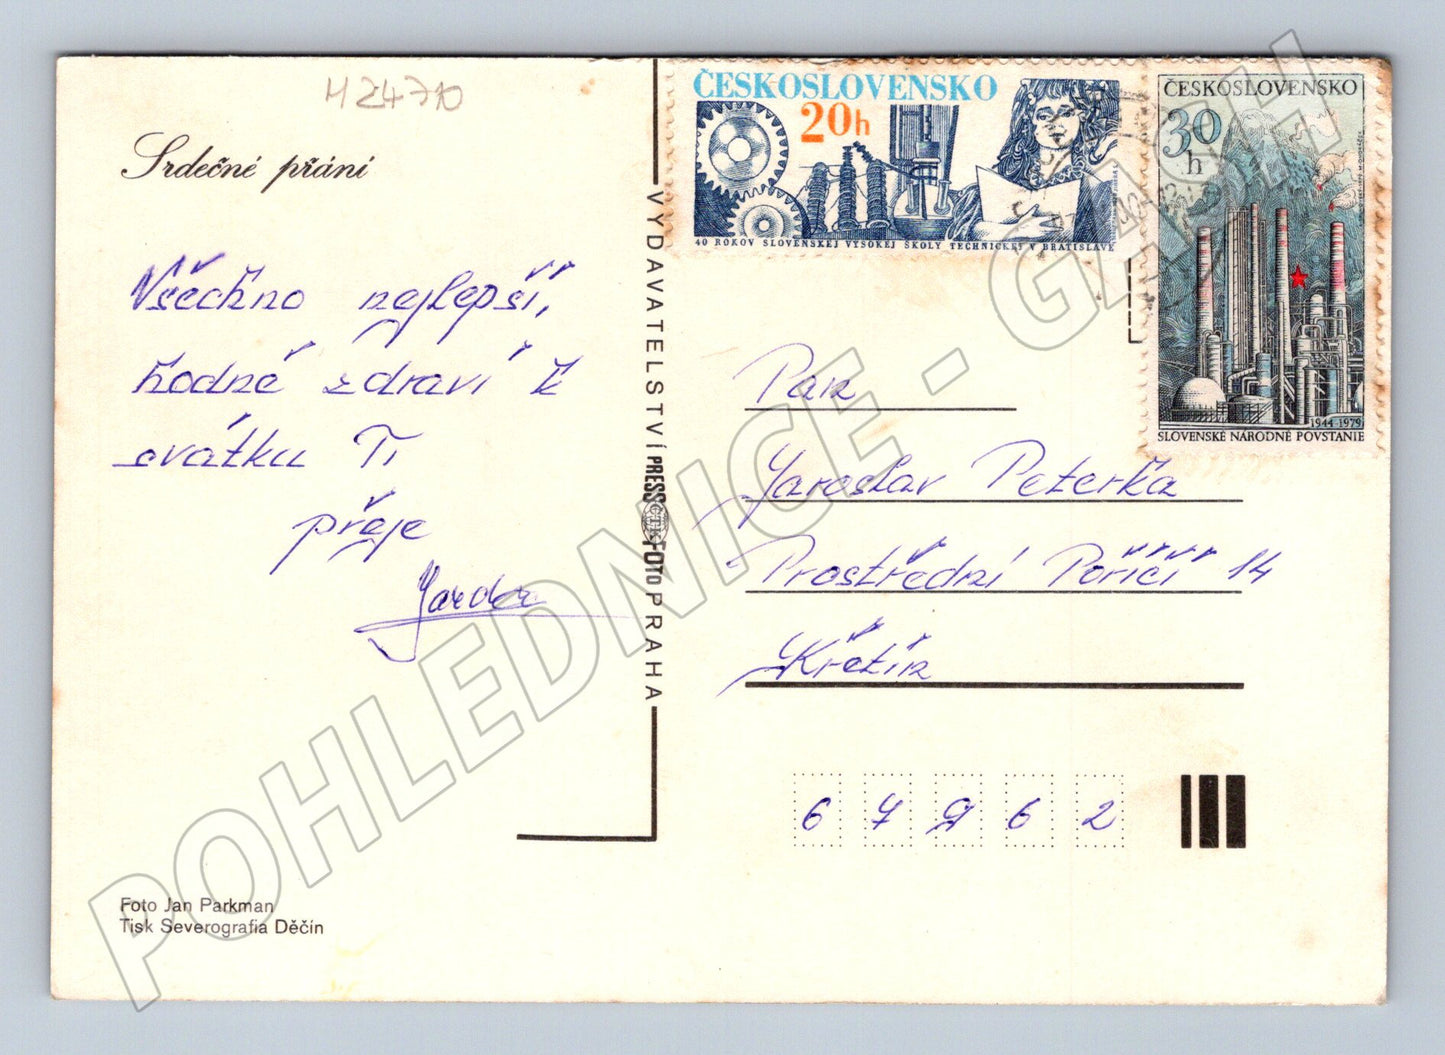 H 24710
Srdečné přání
Všechno nejlepší,
hodně zdraví k
svátku Ti
přeje
Foto Jan Parkman
Tisk Severografia Děčín
VYDAVATELSTVÍ PRESSFOTO PRAHA
ČTK
ČESKOSLOVENSKO
20h
40 ROKOV SLOVENSKEJ VYSOKEJ ŠKOLY TECHNICKEJ V BRATISLAVE
ČESKOSLOVENSKO
30
h
1944-1979
SLOVENSKÉ NÁRODNÉ POVSTANIE
Pan
Jaroslav Peterka
Prostřední Poříčí 14
Křetín
67962
POHLEDNICE - GASH